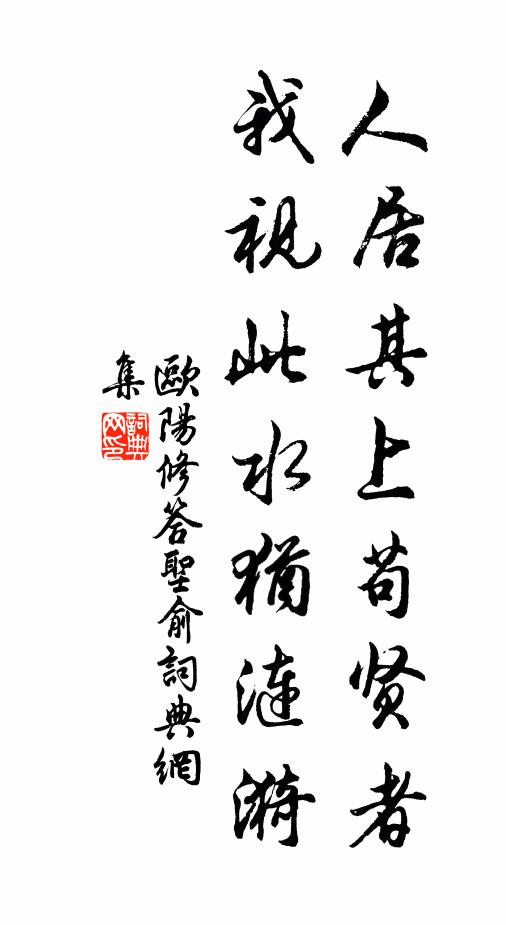 人居其上苟贤者
我視此水猶漣漪
歐陽修答聖俞詞典網
集
詞典网印